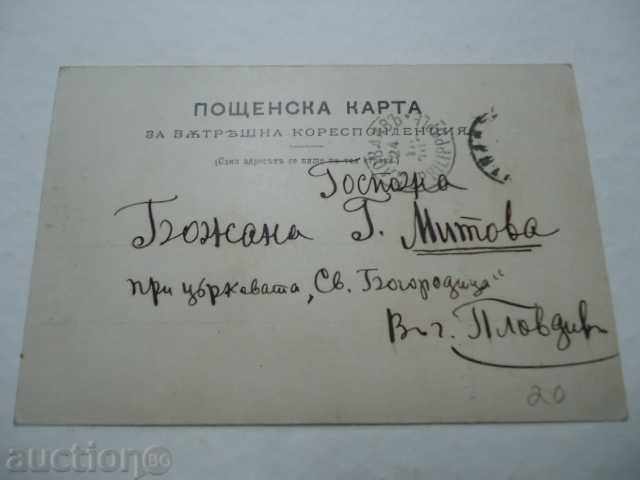 ПОЩЕНСКА КАРТА
ЗА ВѪТРѢШНА КОРЕСПОНДЕНЦИЯ
(Само адресътъ се пише на тая страна)
Госпожа
Божана Г. Митова
при църквата „Св. Богородица“
Въ г. Пловдив
20
auction BG